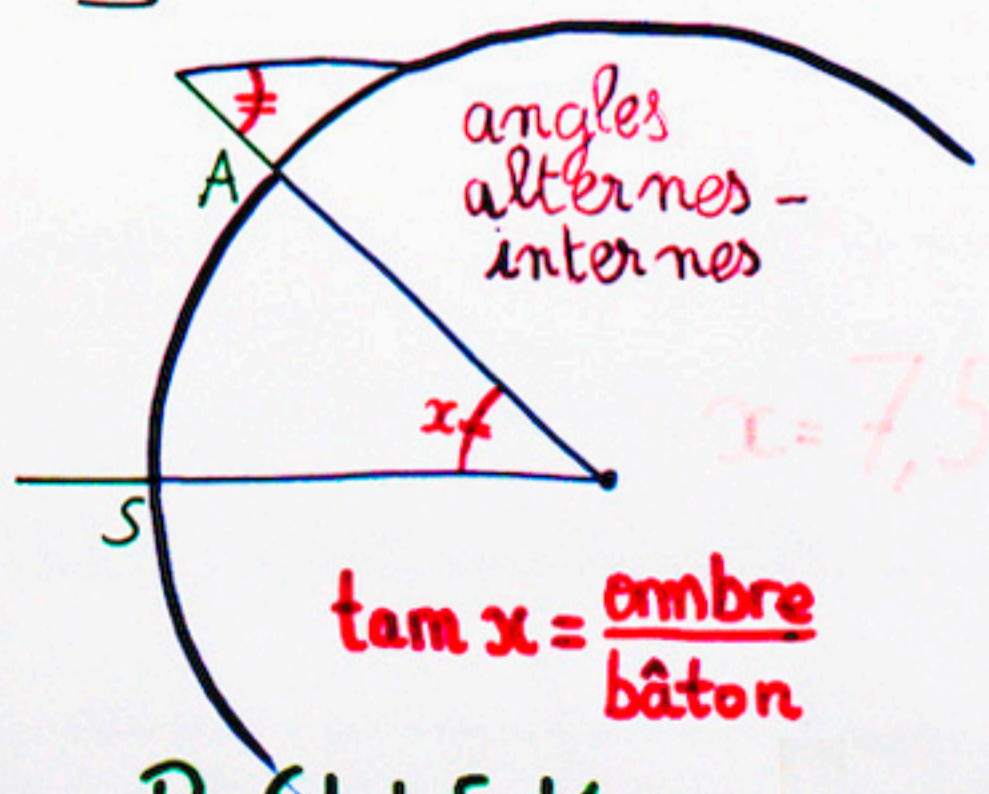 A
angles
alternes -
internes
x
x = 7,5
S
tan x = ombre
bâton